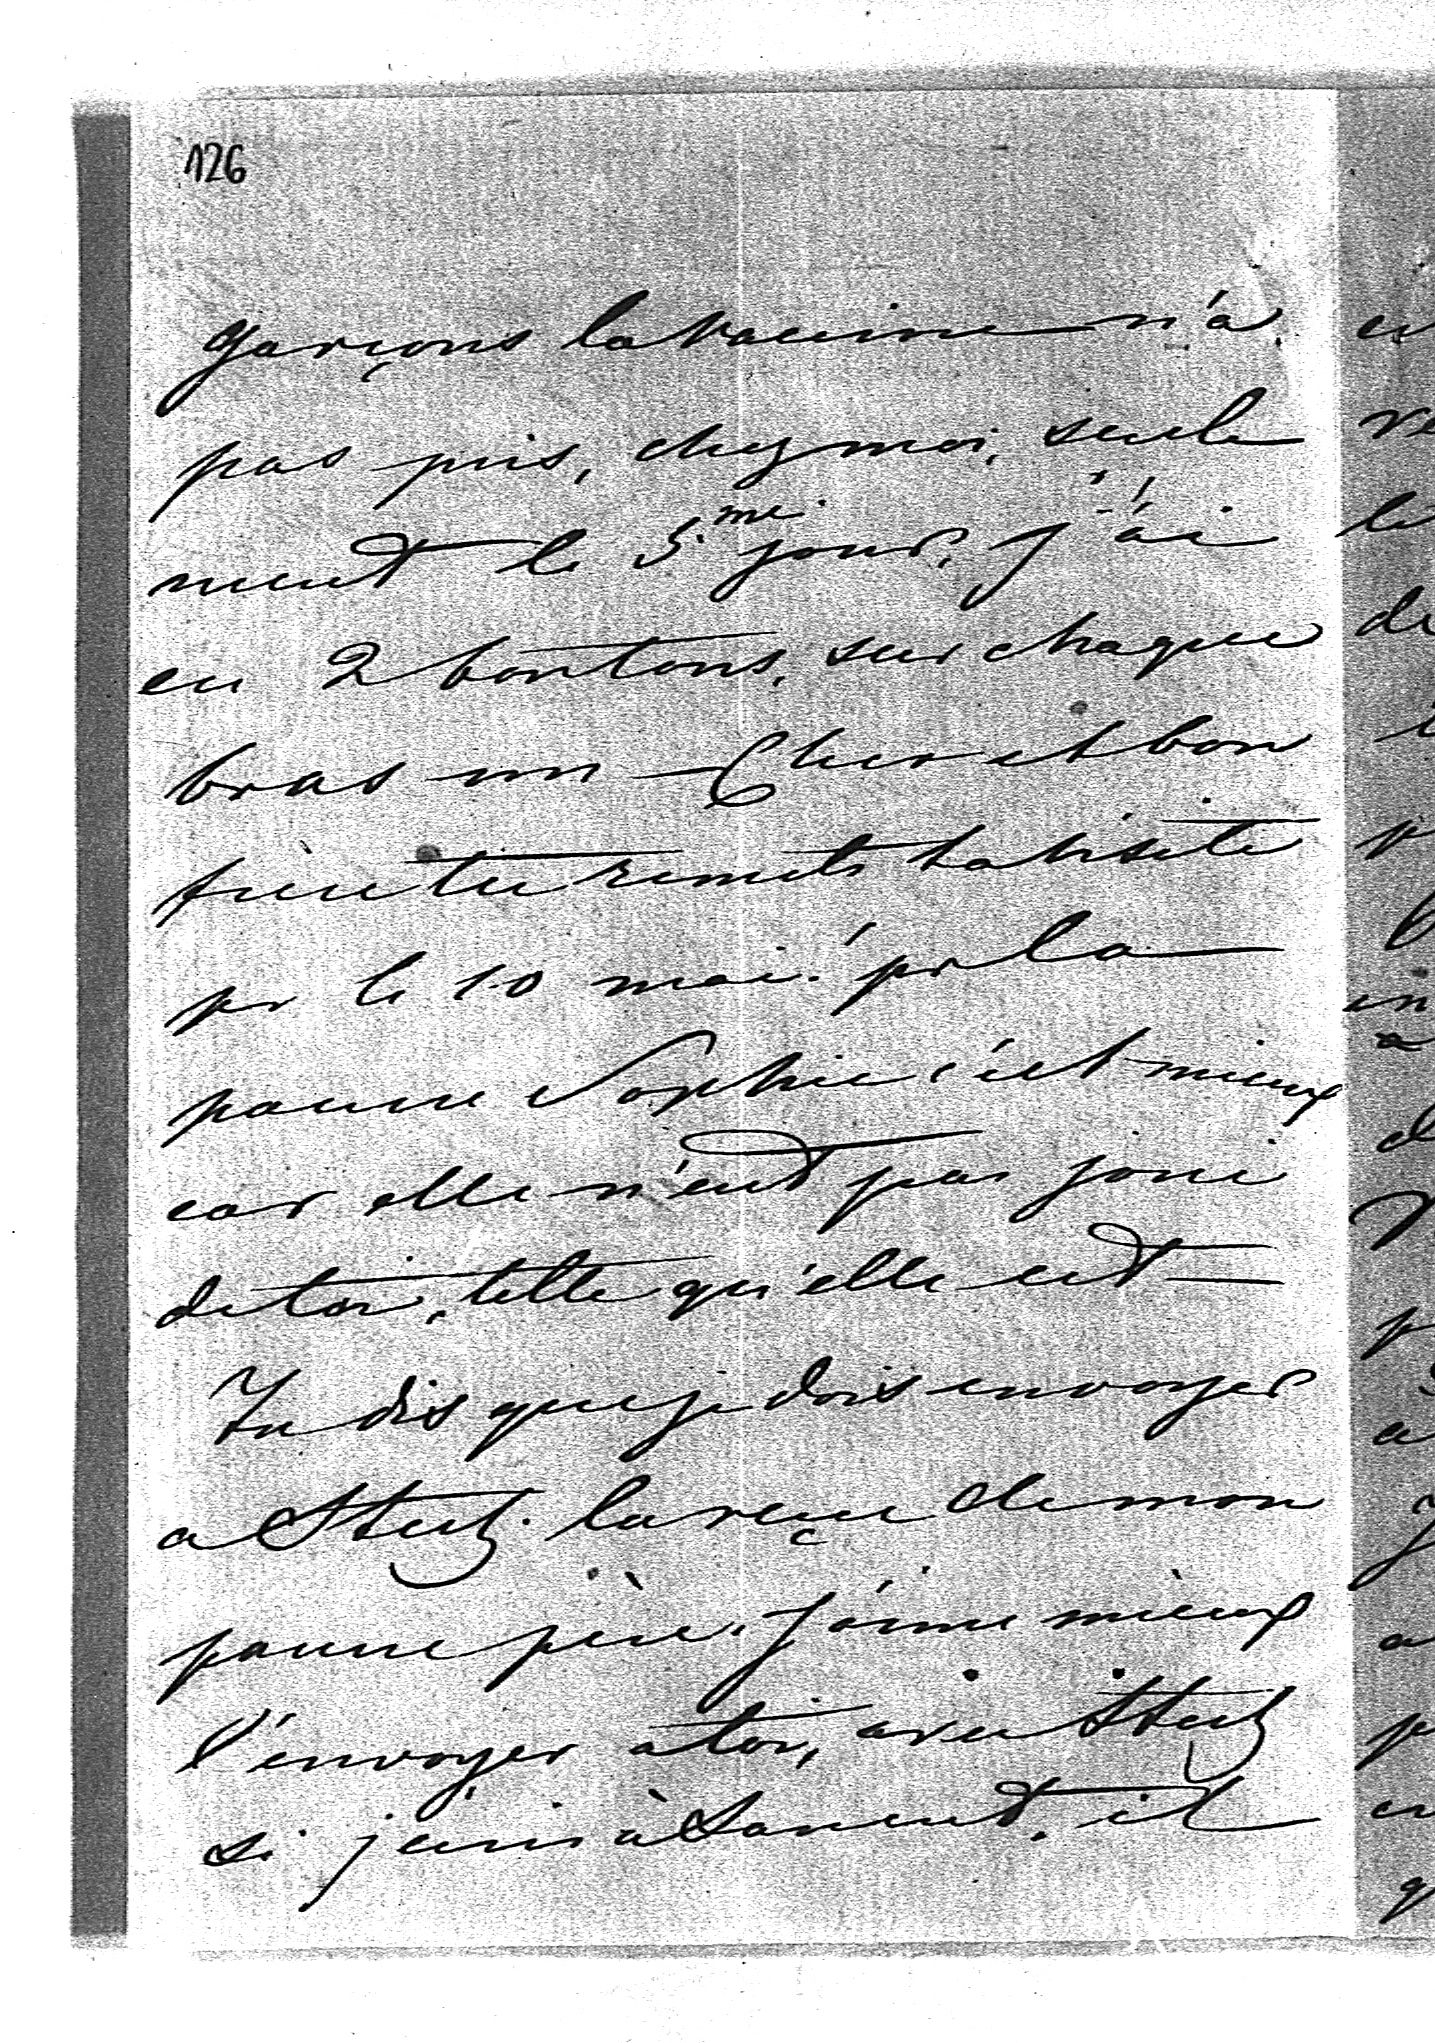 126
garçons la vaccine n'a
pas pris, chez moi, seule
ment le 5me jour, j'ai
eu 2 boutons, sur chaque
bras un — Cher et bon
frère tu remets ta visite
pr le 10 mai. pr la
pauvre Sophie c'est mieux
car elle n'eut pas joui
de toi, telle qu'elle est —
Tu dis que je dois envoyer
a Stutz. la reçue de mon
pauvre père. J'aime mieux
l'envoyer a toi, avec Stutz
si j'ecris à il